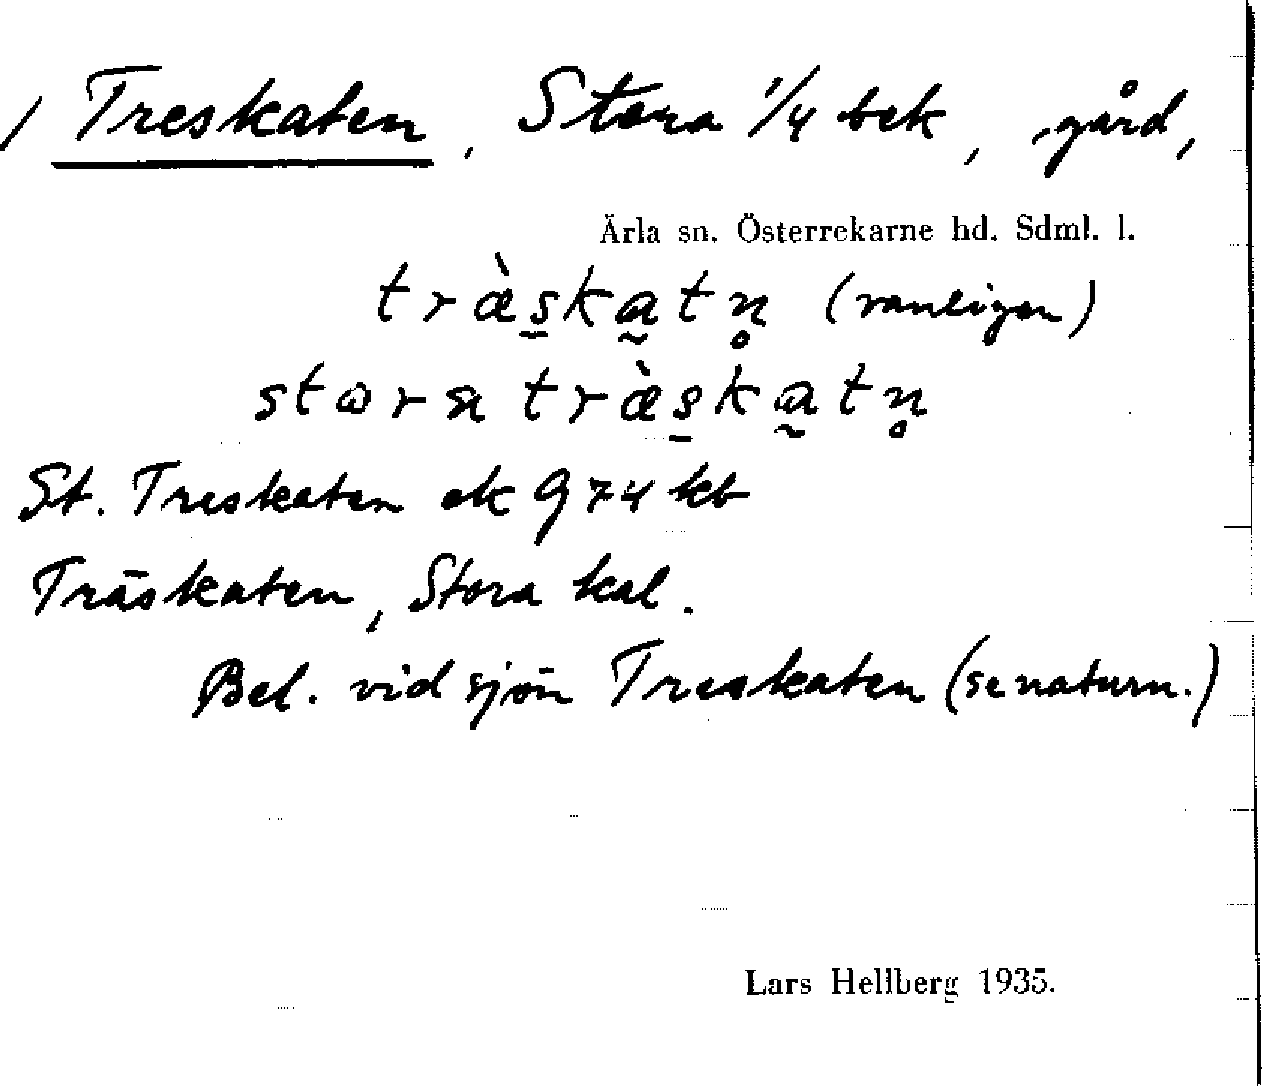 / Treskaten, Stora 1/4 bek, gård,
Ärla sn. Österrekarne hd. Sdml. l.
træ̀s̠ka̰tn̥ (vanligen)
stora træ̀s̠ka̰tn̥
St. Treskaten ek 9 74 kb
Träskaten, Stora kal.
Bel. vid sjön Treskaten (se naturn.)
Lars Hellberg 1935.